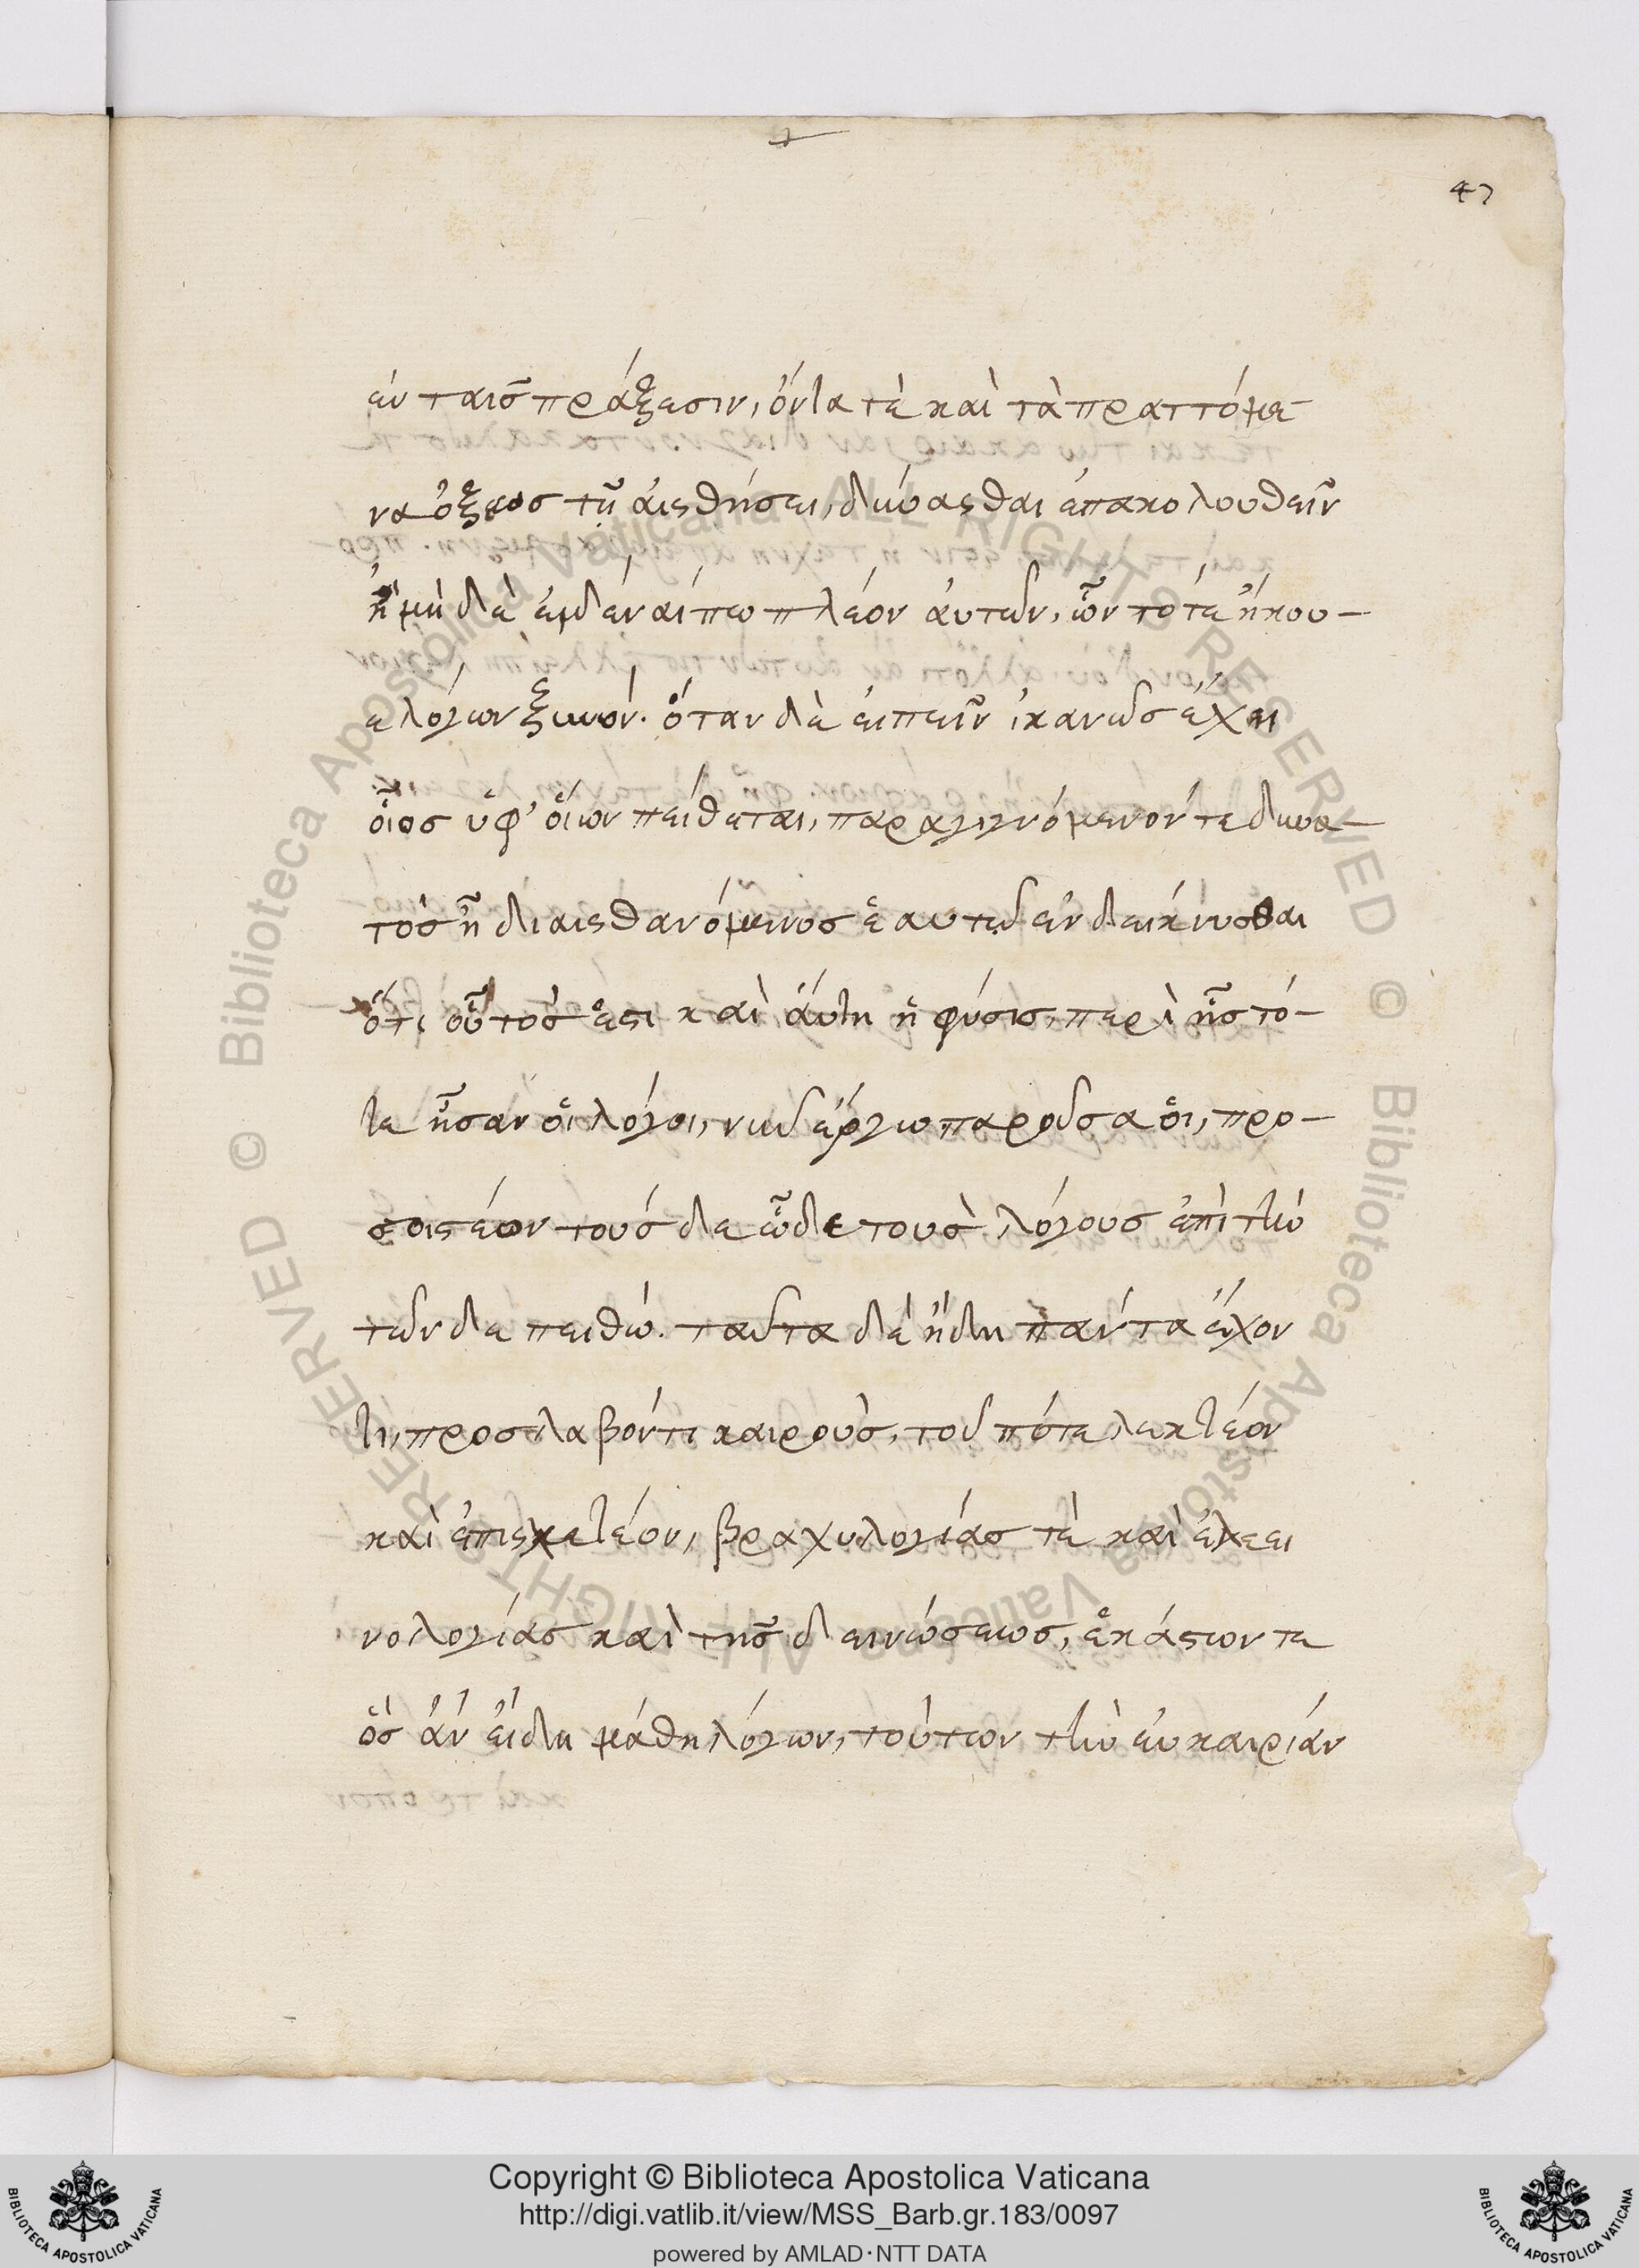 47
ἐν ταισ͂ πράξεσιν, όντα τὲ καὶ τὰ πραττόμε-
να ὀξέως τῇ ἀισθήσει, δύνασθαι ἐπακολουθειν͂
ἢ μὴ δὲ ἐιδέναί πω πλέον ἀυτῶν, ὧν τότε ἤκου-
ε λόγων ξυνών. ὅταν δὲ ἐιπειν͂ ἱκανῶσ ἔχῃ
οἷοσ ὑφ' ὅιων πέιθεται, παραγιγνόμενόν τε δυνα-
τὸσ ᾖ διαισθανόμενοσ ἑαυτῷ ἐνδείκνυσθαι
ὅτι οὗτόσ ἐστι καὶ ἅυτη ἡ φύσισ, περὶ ἧσ τό-
τε ἦσαν ὁι λόγοι, νῦν ἔργω παροῦσα ὁι, προ-
σοιστέον τούσδε ὧδε τοὺσ λόγους ἐπὶ τὴν
τῶνδε πειθώ. ταῦτα δὲ ἤδη πάντα ἔχον
τι, προσλαβόντι καιροὺσ, τοῦ πότε λεκτέον
καὶ ἐπισχετέον, βραχυλογίασ τὲ καὶ ἐλεει
νολογίασ καὶ τησ͂ δεινώσεωσ, ἑκάστων τε
ὅσ ἂν ἐίδη μάθη λόγων, τούτων τὴν ἐυκαιρίαν
Copyright © Biblioteca Apostolica Vaticana
http://digi.vatlib.it/view/MSS_Barb.gr.183/0097
powered by AMLAD·NTT DATA
BIBLIOTECA APOSTOLICA VATICANA
BIBLIOTECA APOSTOLICA VATICANA